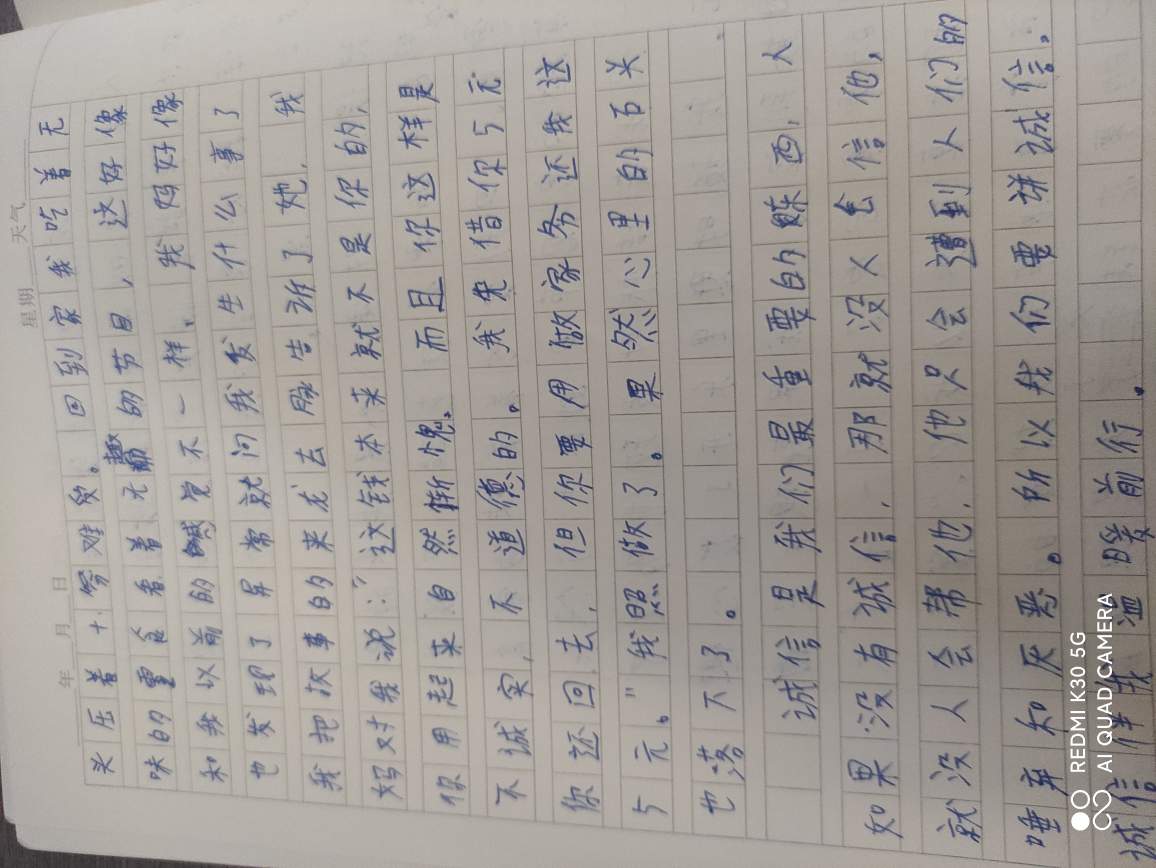 年 月 日 星期 天气
头压着十分难受。回到家我吃着无
味的零食看着无趣的节目，这好像
和我以前的感觉不一样，我妈好像
也发现了异常就问我发生什么事了
我把故事的来龙去脉告诉了她，我
妈对我说：“这钱本来就不是你的，
你用起来自然惭愧。而且你这样是
不诚实，不道德的。我先借你5元
你还回去，但你要用做家务还我这
5元。”我照做了。果然心里的石头
也落下了。
诚信是我们最重要的东西，人
如果没有诚信，那就没人会信他，
就没人会帮他，他只会遭到人们的
唾弃和厌恶。所以我们要讲诚信。
诚信伴我 前行。
REDMI K30 5G
AI QUAD CAMERA